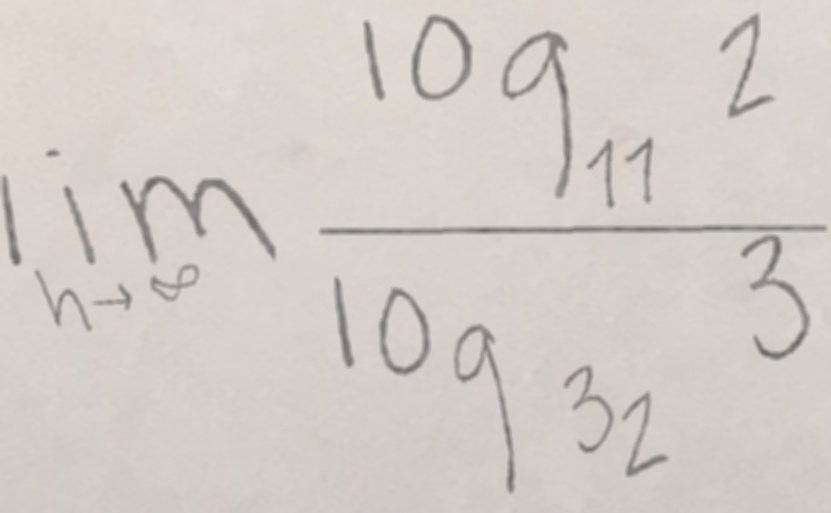 lim n→∞ log₁₁ 2 / log₃₂ 3